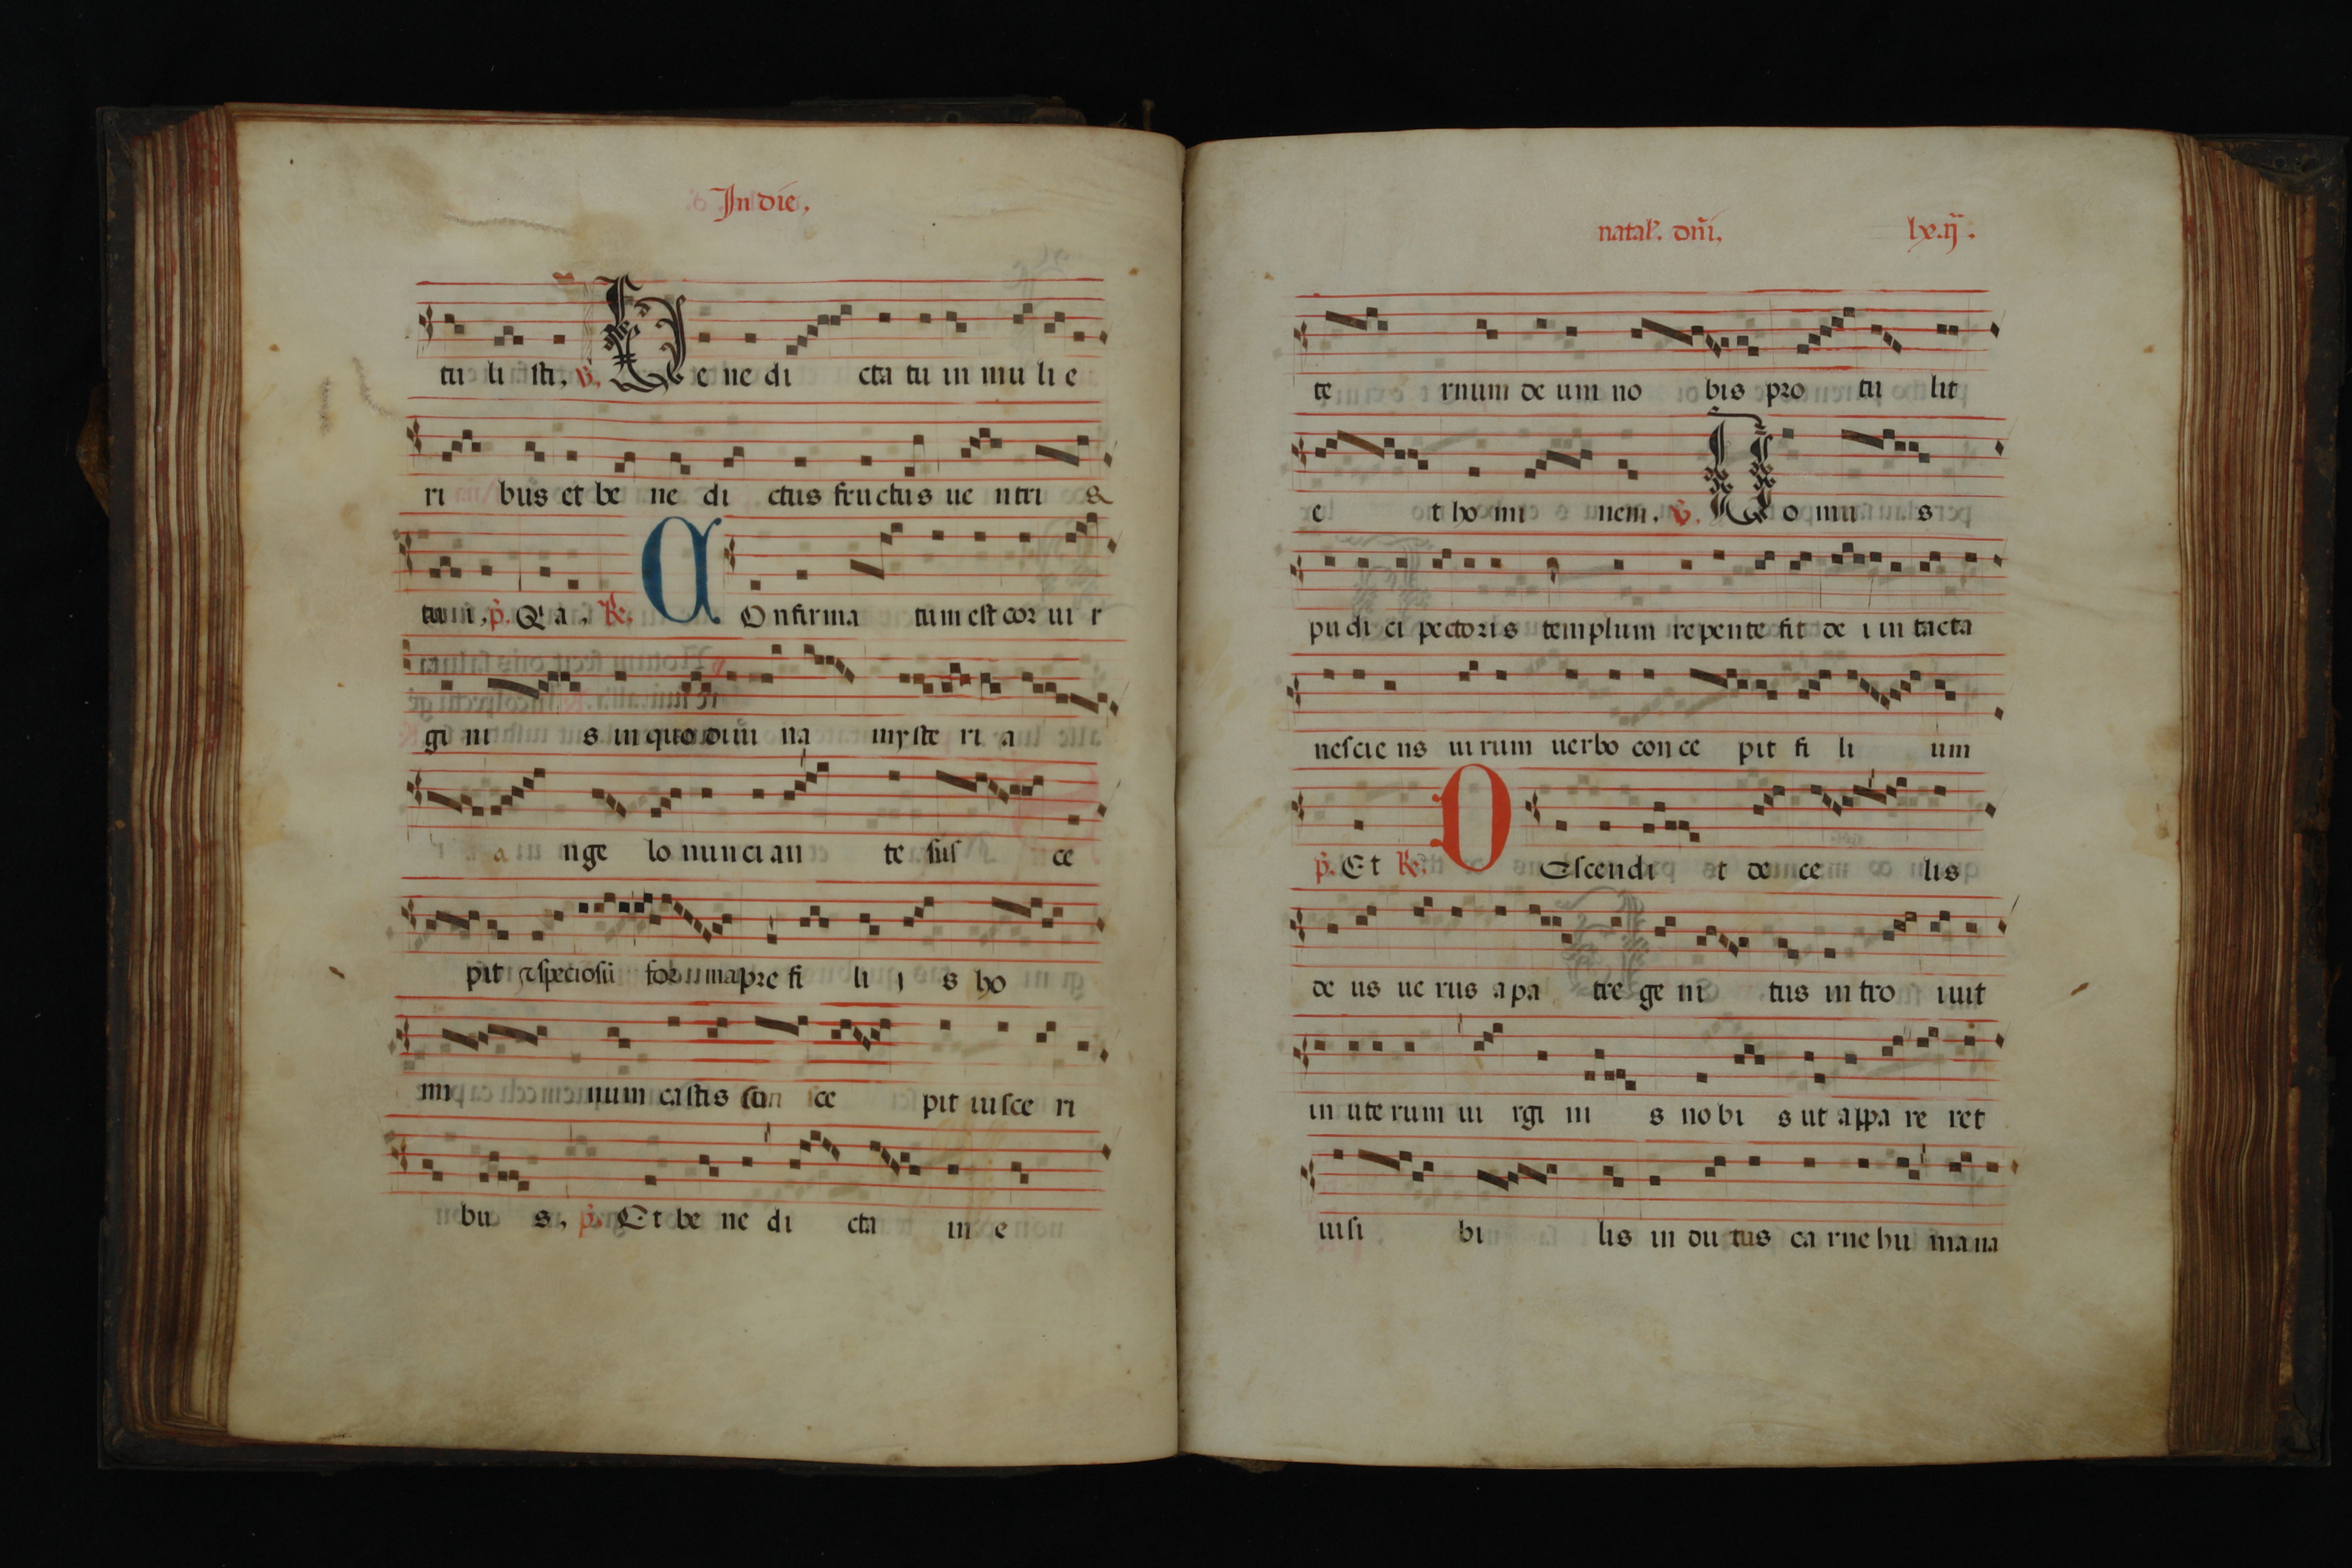 In die.
tu li sti. v. B e ne di cta tu in mu li e
ri bus et be ne di ctus fructus ue ntri s
tui. p. Q a. R. C O nfirma tum est cor ui r
gi ni s in quo diui na myste ri a
a nge lo nunci an te sus ce
pit speciosū for ma pre fi li i s ho
mi num castis con ce pit uisce ri
bu s. p. Et be ne di cta in e
natal. dñi. lx.ij.
te rnum de um no bis pro tu lit
e t ho mi nem. v. D o mu s
pu di ci pectoris templum repente fit de i in tacta
nescie ns ui rum uerbo con ce pit fi li um
p. Et R. D Escendi t de ce lis
de us ue rus a pa tre ge ni tus in tro iuit
in ute rum ui rgi ni s no bi s ut appa re ret
uisi bi lis in du tus ca rne hu ma na